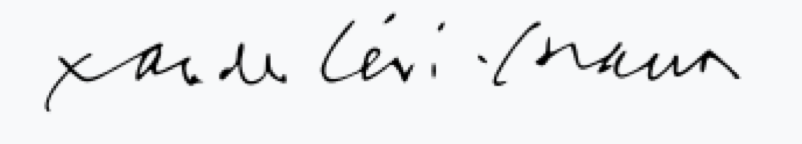 Claude Lévi-Strauss